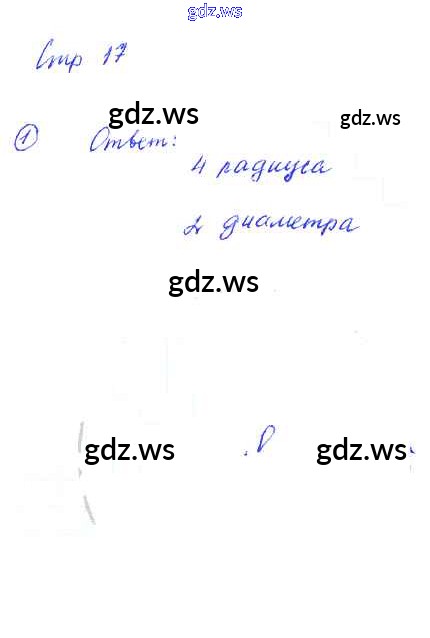 gdz.ws
Стр 17
gdz.ws
gdz.ws
1 Ответ:
4 радиуса
2 диаметра
gdz.ws
gdz.ws
gdz.ws